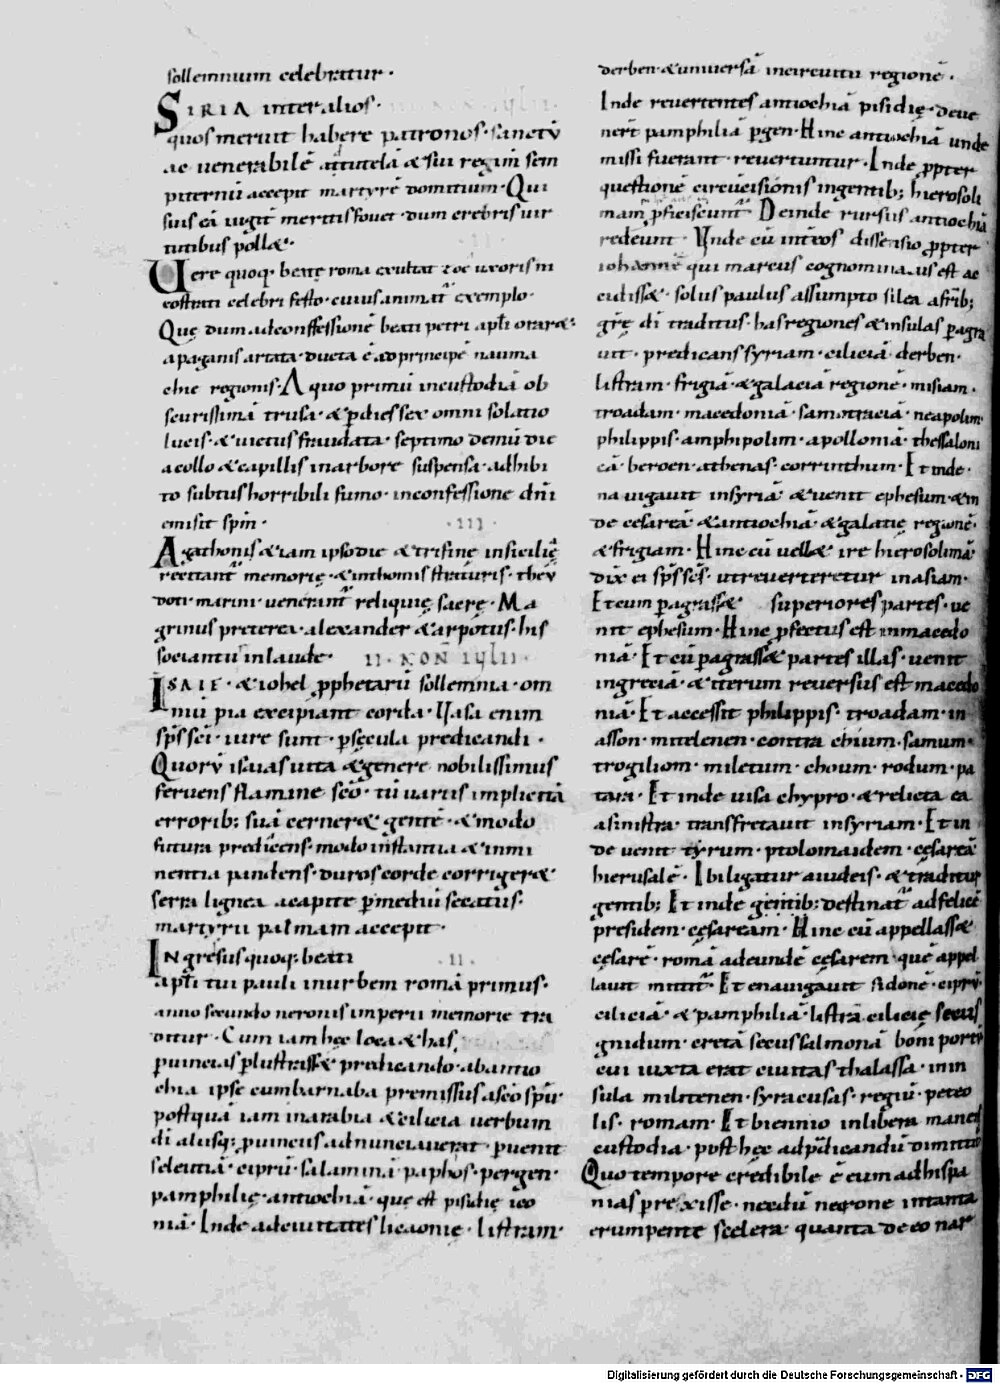 sollemnium celebratur·
SIRIA inter alios·
quos meruit habere patronos· sanctū
ac uenerabilē ad tutelā & sui regim sem
piternū accepit martyrē domitium· Qui
suis eā iugit͛ meritis fouet· dum crebris uir
tutibus poll&·
Uere quoq· beatę roma exultat zoe uxoris ni
costrati celebri festo· cuius animat͛ exemplo·
Quę dum ad conffessionē beati petri apłi orar&·
a paganis artata· ducta ē ad principē nauma
chię regionis· A quo primū in custodiā ob
scurissimā trusa· & p dies sex omni solatio
lucis· & uictus fraudata· septimo demū die
a collo & capillis in arbore suspensa· adhibi
to subtus horribili fumo· in confessione dn̄i
emisit sp̄m· ·III·
Agathonis & iam ipso die & trisine in sicilię
recitant͛ memorię· & in thomis straturis· theu
doti· marini· uenerant͛ reliquię sacrę· Ma
grinus preterea· alexander & arpotus· his
sociant͛ in laude· II· NON IULII·
ISAIE· & iohel p̱phetarū sollemnia· om
niū pia excipiant corda· Uasa enim
sp̄s sc̄i· iure sunt· p sęcula predicandi·
Quorū isaias uita & genere nobilissimus
feruens flamine sc̄o· tū uariis implicitā
errorib; suā cerner& gentē· & modo
futura predicens· modo instantia & inmi
nentia pandens· duros corde corriger&·
serra lignea a capite p mediū secatus·
martyrii palmam accepit·
INgresus quoq; beati ·II·
apłi tui pauli in urbem romā primus·
anno secundo neronis imperii memorie tra
ditur· Cum iam hęc loca & has
puincias plustrass& predicando· ab antio
chia ipse cum barnaba premissus a sc̄o sp̄u
postquā iam in arabia & cilicia uerbum
di aliisq; puinciis adnunciauerat· puenit
seleutiā· ciprū· salaminā· paphos· pergen·
pamphilię· antiochiā· que est pisidię ico
niā· Inde ad ciuitates licaonię· listram·
derben· & uniuersā in circuitu regionē·
Inde reuertentes antiochiā pisidię· deue
nerт̄ pamphiliā pgen· Hinc antiochiā unde
missi fuerant· reuertuntur· Inde p̱pter
questionē circūcisionis in gentib; hierosoli
mam p̱ficiscunt͛· Deinde rursus antiochiā
redeunt· Unde cū int eos dissensio p̱pter
iohannē qui marcus cognominatus est ac
cidiss&· solus paulus assumpto silea a fr̄ib;
grę di traditus· has regiones & insulas pagra
uit· predicans syriam· ciliciā derben·
listram· frigiā· & galaciā regionē· misiam·
troadam· macedoniā· samotraciā· neapolim·
philippis· amphipolim· apolloniā· thessaloni
cā· beroen· athenas· corrinthum· Et inde·
nauigauit in syriā· & uenit ephesum· & in
de cesareā· & antiochiā· & galatię regionē·
& frigiam· Hinc cū uell& ire hierosolimā·
dix ei sp̄s sc̄s· ut reuerteretur in asiam·
Et cum pagrass& superiores partes· ue
nit ephesum· Hinc p̱fectus est in macedo
niā· Et cū pagrass& partes illas· uenit
in greciā· & iterum reuersus est macedo
niā· Et accessit philippis· troadam· in
asson· mitelenen· contra chium· samum·
trogiliom· miletum· choum· rodum· pa
tara· Et inde uisa chypro· & relicta ea
a sinistra· transfretauit in syriam· Et in
de uenit tyrum· ptolomaidem· cęsareā
hierusalē· Ibi ligatur a iudeis· & traditur
gentib; Et inde gentib; destinat͛ ad felicē
presidem· cęsaream· Hinc cū appellass&
cęsarē· romā adeundē cęsarem· quē appel
lauit mittit͛· Et enauigauit sidonē· ciprū·
ciliciā· & pamphiliā· listrā cilicię secus
gnidum· cretā secus salmonā boni portꝰ
cui iuxta erat ciuitas thalassa· in in
sula militenen· syracusas· regiū· puteo
lis· romam· Et biennio in libera manet
custodia· post hęc ad p̄dicandū dimittit͛
Quo tempore credibile ē eum ad hispa
nias prexisse· necdū nerone in tanta
erumpente scelera· quanta de eo nar
Digitalisierung gefördert durch die Deutsche Forschungsgemeinschaft - DFG